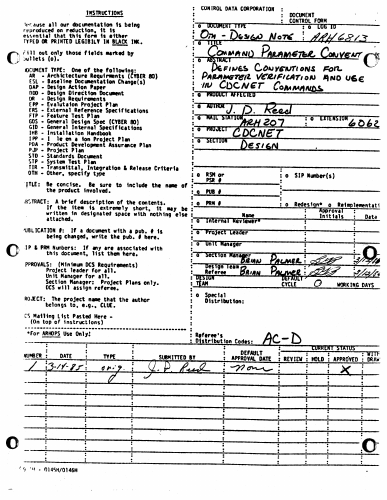 INSTRUCTIONS
because all our documentation is being
reproduced on reduction, it is
essential that this form is either
TYPED OR PRINTED LEGIBLY IN BLACK INK.
Fill out only those fields marked by
bullets (o).
DOCUMENT TYPE: One of the following:
AR - Architecture Requirements (CYBER 80)
ESL - Baseline Documentation Change(s)
DAP - Design Action Paper
DDD - Design Direction Document
DR - Design Requirements
EPP - Evaluation Project Plan
ERS - External Reference Specifications
FTP - Feature Test Plan
GDS - General Design Spec (CYBER 80)
GID - General Internal Specifications
IHB - Installation Handbook
PDA - Product Development Assurance Plan
PJP - Project Plan
STD - Standards Document
STP - System Test Plan
TIR - Transmittal, Integration & Release Criteria
OTH - Other, specify type
TITLE: Be concise. Be sure to include the name of
the product involved.
ABSTRACT: A brief description of the contents.
If the item is extremely short, it may be
written in designated space with nothing else
attached.
PUBLICATION #: If document with a pub. # is
being changed, write the pub. # here.
SIP & PRM Numbers: If any are associated with
this document, list them here.
APPROVALS: (Minimum DCS Requirements)
Project leader for all.
Unit Manager for all.
Section Manager: Project Plans only.
DCS will assign referees.
PROJECT: The project name that the author
belongs to, e.g., CLUE.
DCS Mailing List Pasted Here -
(On top of instructions)
*For ARHOPS Use Only!
CONTROL DATA CORPORATION
DOCUMENT
CONTROL FORM
o DOCUMENT TYPE
o LOG ID
OTH - DESIGN NOTE
ARH6813
o TITLE
COMMAND PARAMETER CONVENT
o ABSTRACT
DEFINES CONVENTIONS FOR
PARAMETER VERIFICATION AND USE
IN CDCNET COMMANDS
o PRODUCT AFFECTED
o AUTHOR
J. D. Reed
o MAIL STATION
ARH207
o EXTENSION
6062
o PROJECT
CDCNET
o SECTION
DESIGN
o RSM or
PSR #
o SIP Number(s)
o PUB #
o PRM #
o Redesign* o Reimplementati
Name
Approval
Initials
Date
o Internal Reviewer*
o Project Leader
o Unit Manager
o Section Manager
BRIAN PALMER
Design Team
Referee
BRIAN PALMER
DESIGN
TEAM
DEFAULT
CYCLE
0
WORKING DAYS
o Special
Distribution:
Referee's
Distribution Codes:
AC-D
NUMBER
DATE
TYPE
SUBMITTED BY
DEFAULT
APPROVAL DATE
CURRENT STATUS
REVIEW
HOLD
APPROVED
WITH
DRAW
1
3-14-85
orig
J. D. Reed
none
X
0145H/0146H